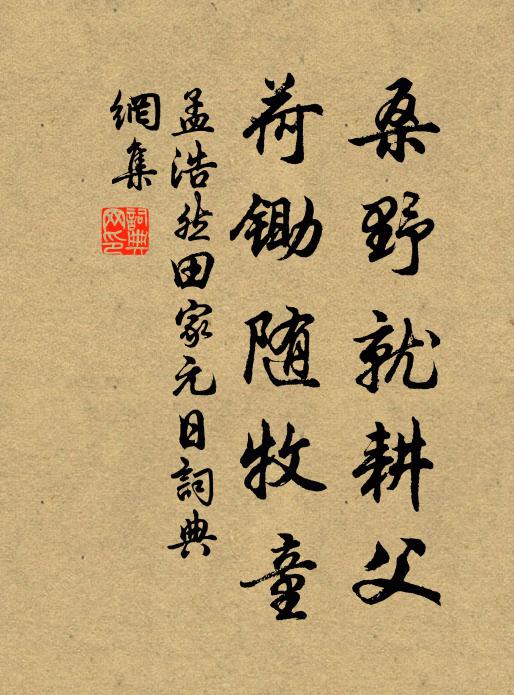 桑野就耕父
荷鋤随牧童
孟浩然田家元日詞典
網集
詞典网印